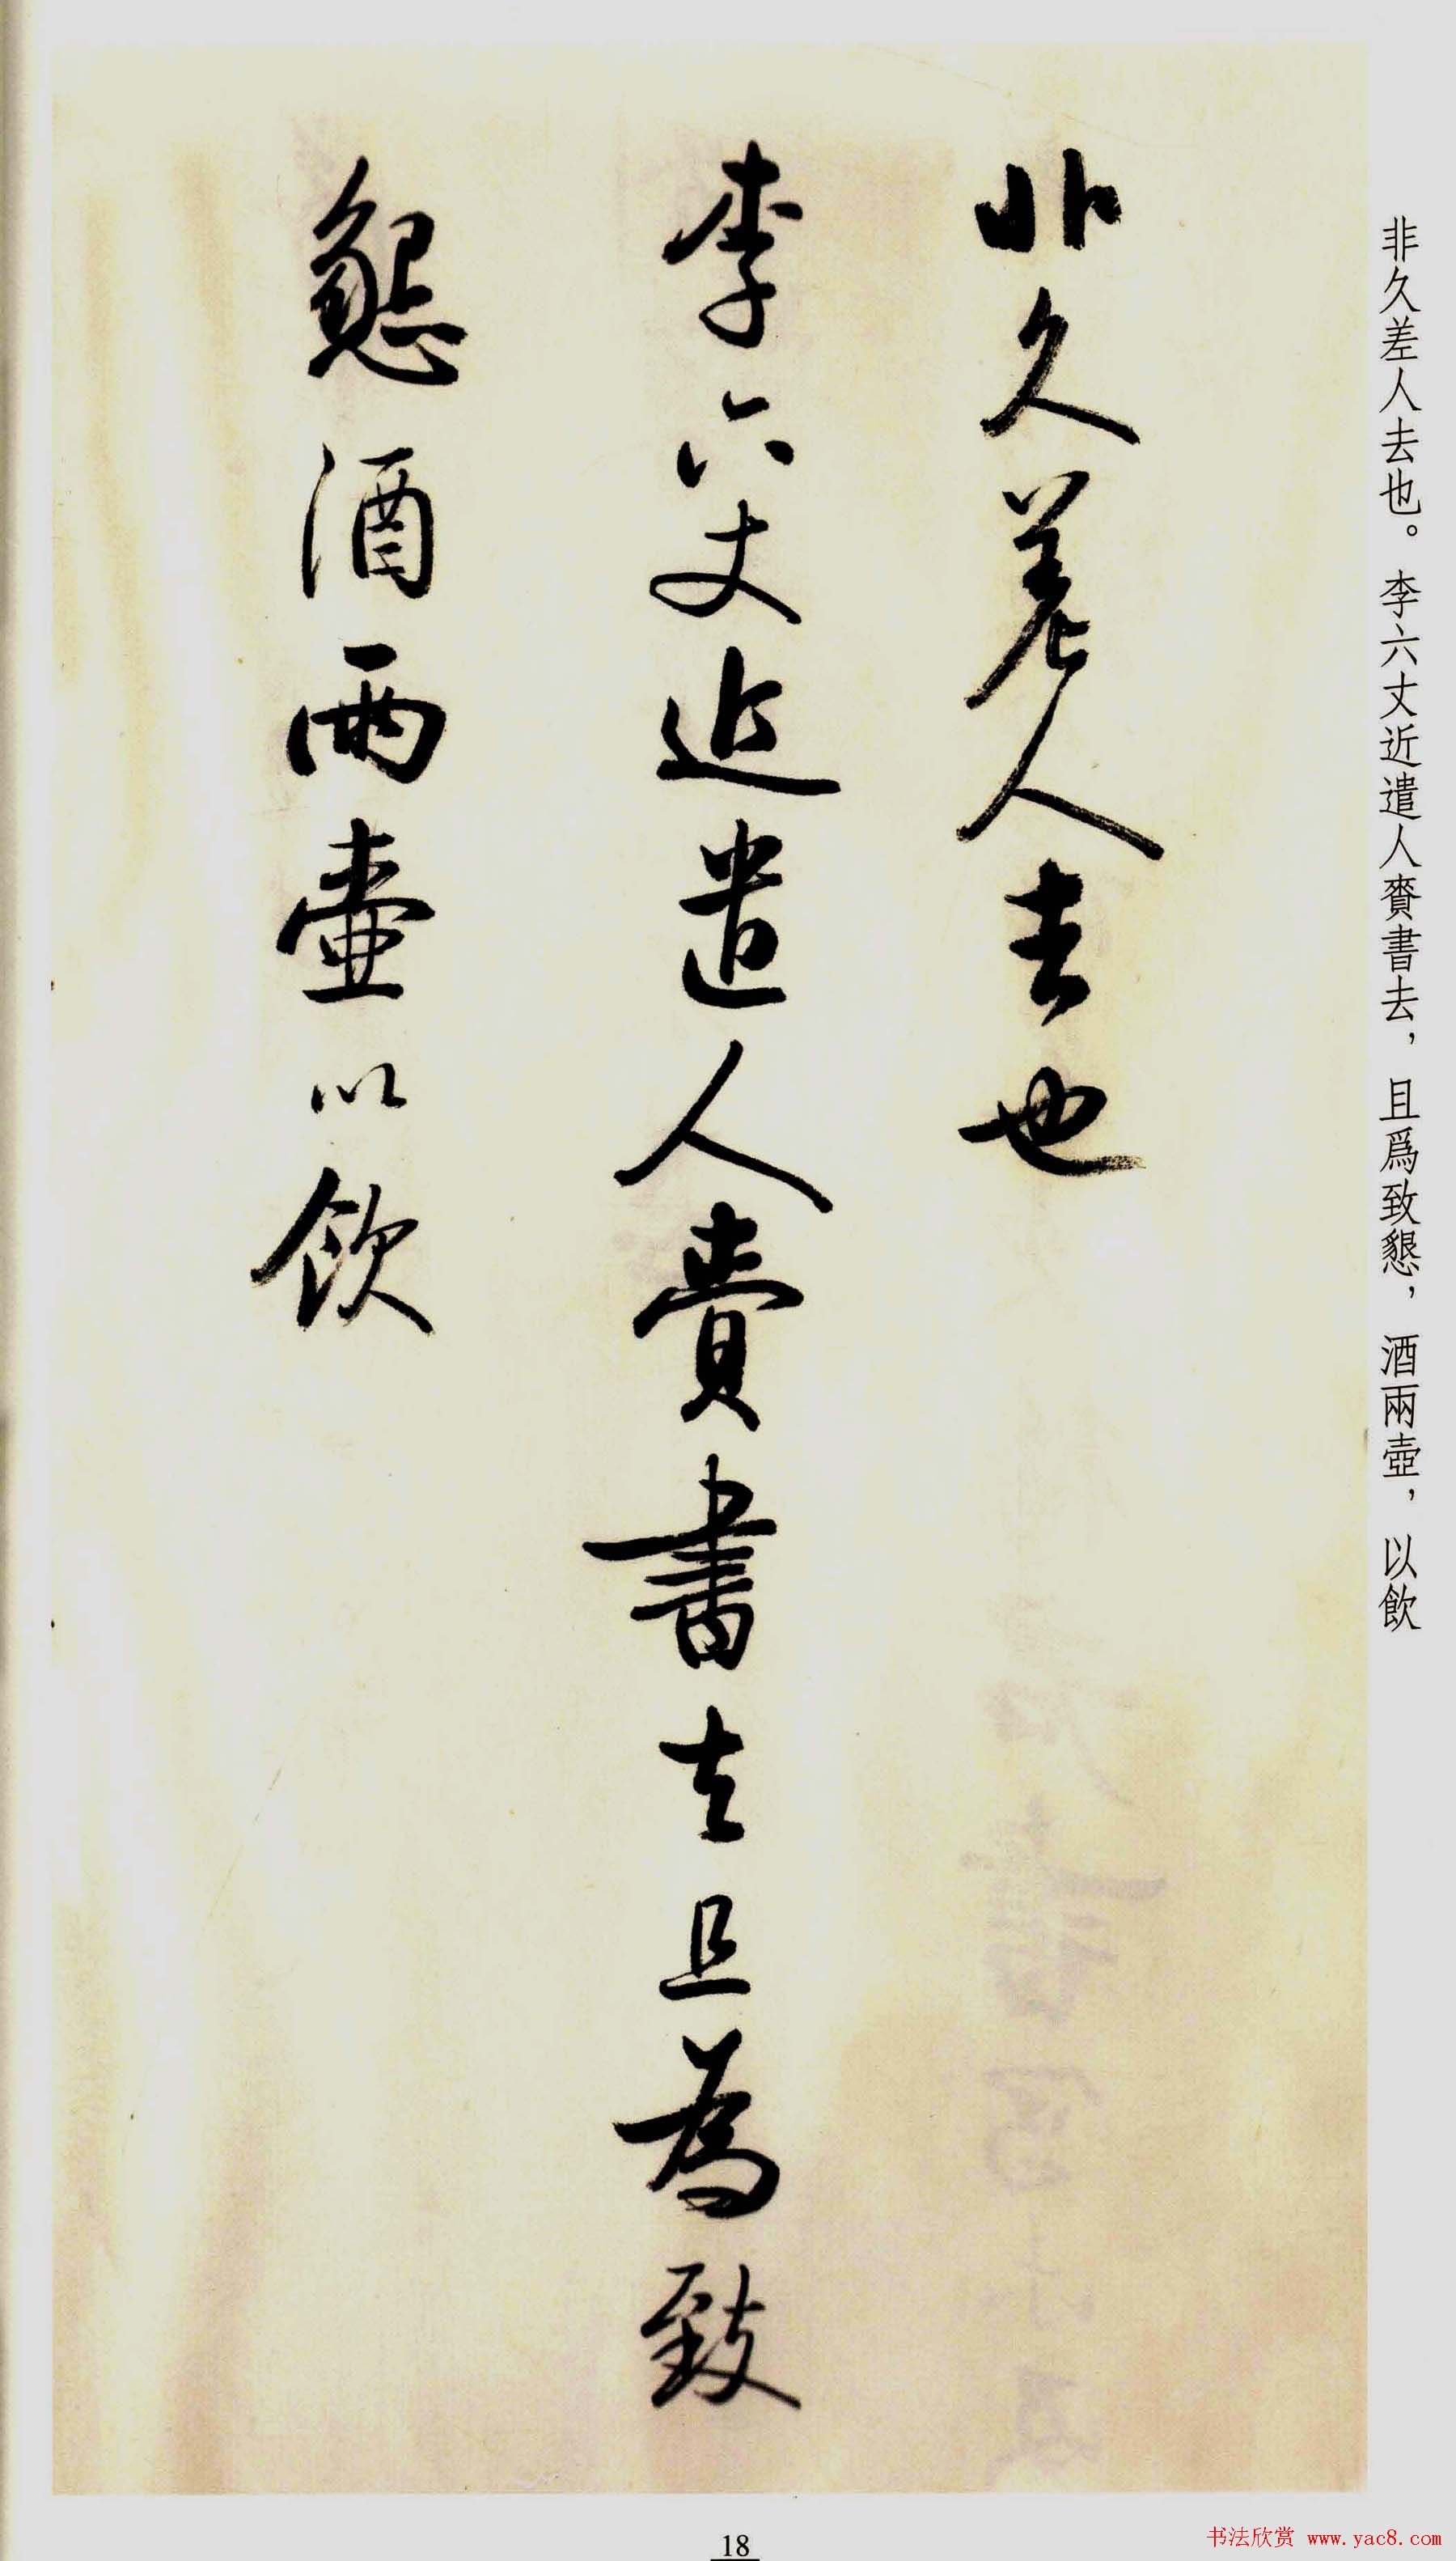 非久差人去也。李六丈近遣人賫書去，且爲致懇，酒兩壺，以飲
非久差人去也
李六丈近遣人賫書去且為致
懇酒兩壺以飲
18
书法欣赏 www.yac8.com